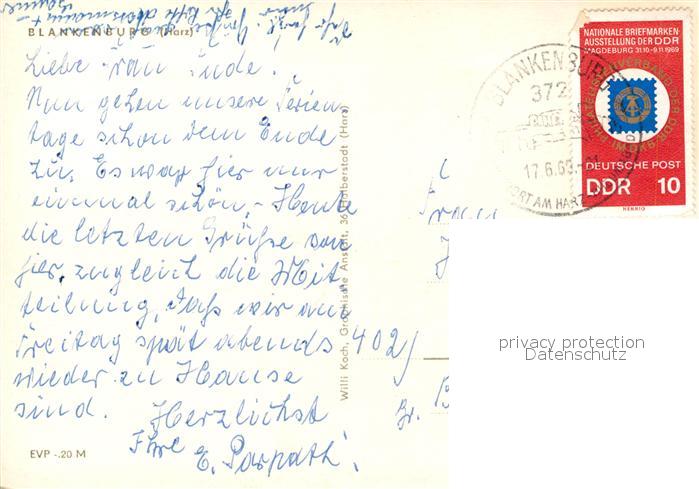 BLANKENBURG (Harz)
Liebe Frau Ende.
Nun gehen unsere Ferien
tage schon dem Ende
zu. Es war hier nur
einmal schön, - Heute
die letzten Grüße von
hier, zugleich die Mit
teilung, daß wir am
Freitag spät abends
wieder zu Hause
sind. Herzlichst
Ihre
EVP -.20 M
Willi Koch, Graphische Anstalt, 36 Halberstadt (Harz)
402
BLANKENBURG
372
17.6.69.
ORT AM HARZ
NATIONALE BRIEFMARKEN-
AUSSTELLUNG DER DDR
MAGDEBURG 31.10-9.11.1969
PHILATELISTENVERBAND DER DDR IM DKB
DEUTSCHE POST
DDR 10
HENNIG
Frau
privacy protection
Datenschutz